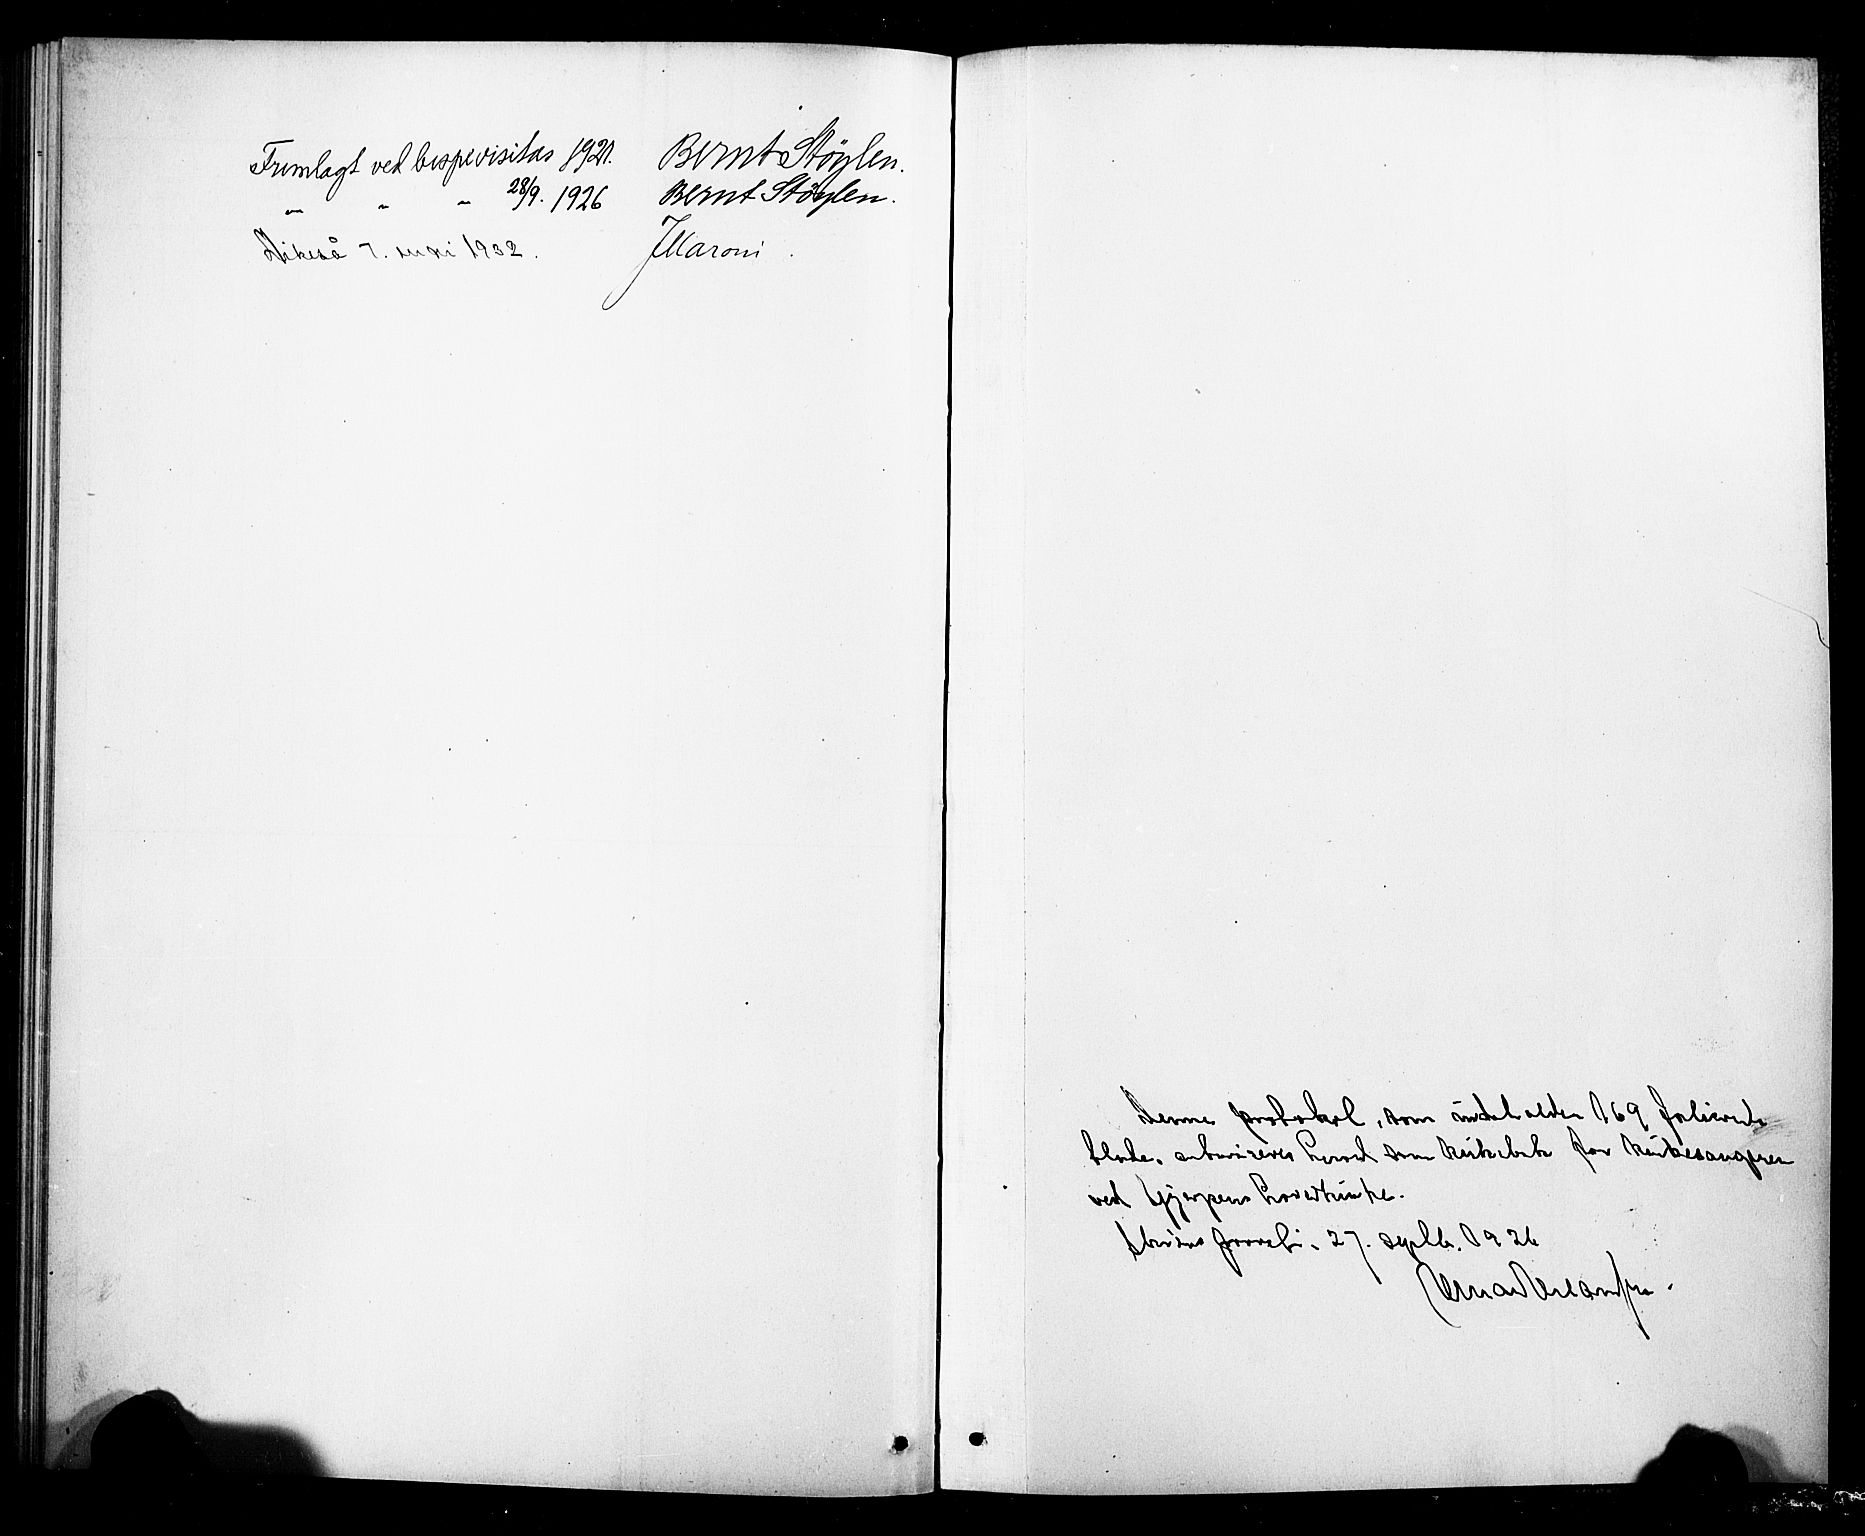 Fremlagt ved bispevisitas 1921. Bernt Støylen.
„ „ „ 28/9. 1926 Bernt Støylen.
Likeså 7. juni 1932. J Maroni.
Denne protokol, som indeholder 169 folierede
blade, autoriseres herved som kirkebok for kirkesangeren
ved Gjerpens hovedkirke.
provsti, 27. septb. 1926